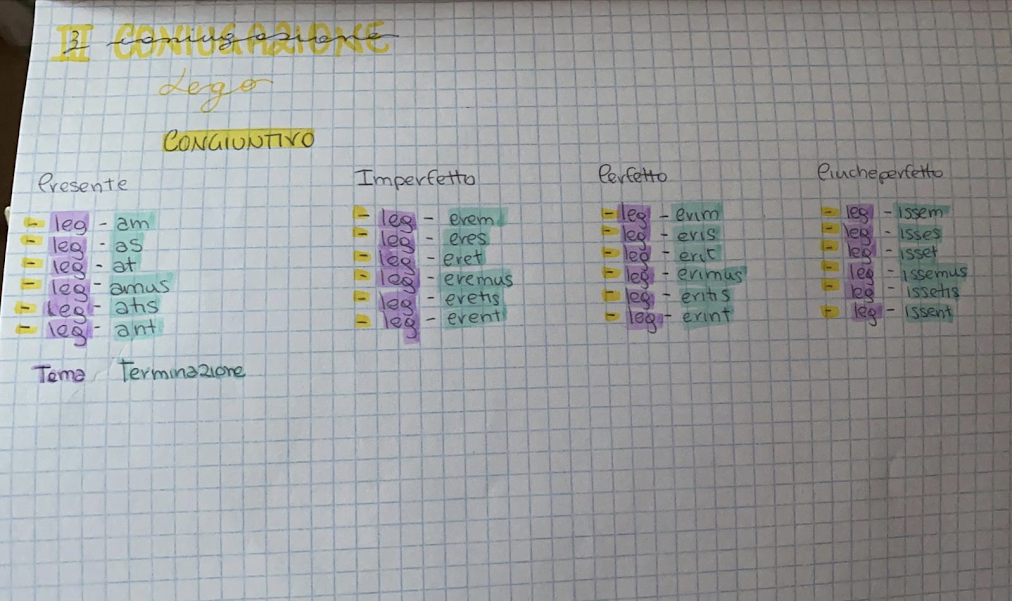 III CONIUGAZIONE
3 coniugazione
Lego
CONGIUNTIVO
Presente
- leg - am
- leg - as
- leg - at
- leg - amus
- leg - atis
- leg - ant
Tema Terminazione
Imperfetto
- leg - erem
- leg - eres
- leg - eret
- leg - eremus
- leg - eretis
- leg - erent
Perfetto
- leg - erim
- leg - eris
- leg - erit
- leg - erimus
- leg - eritis
- leg - erint
Piucheperfetto
- leg - issem
- leg - isses
- leg - isset
- leg - issemus
- leg - issetis
- leg - issent